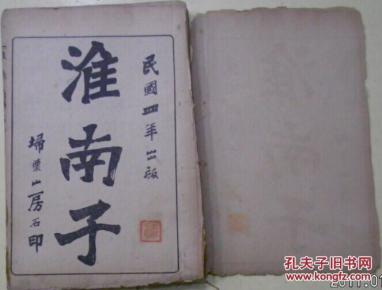 民國四年出版
淮南子
掃葉山房石印
2011.01
孔夫子旧书网